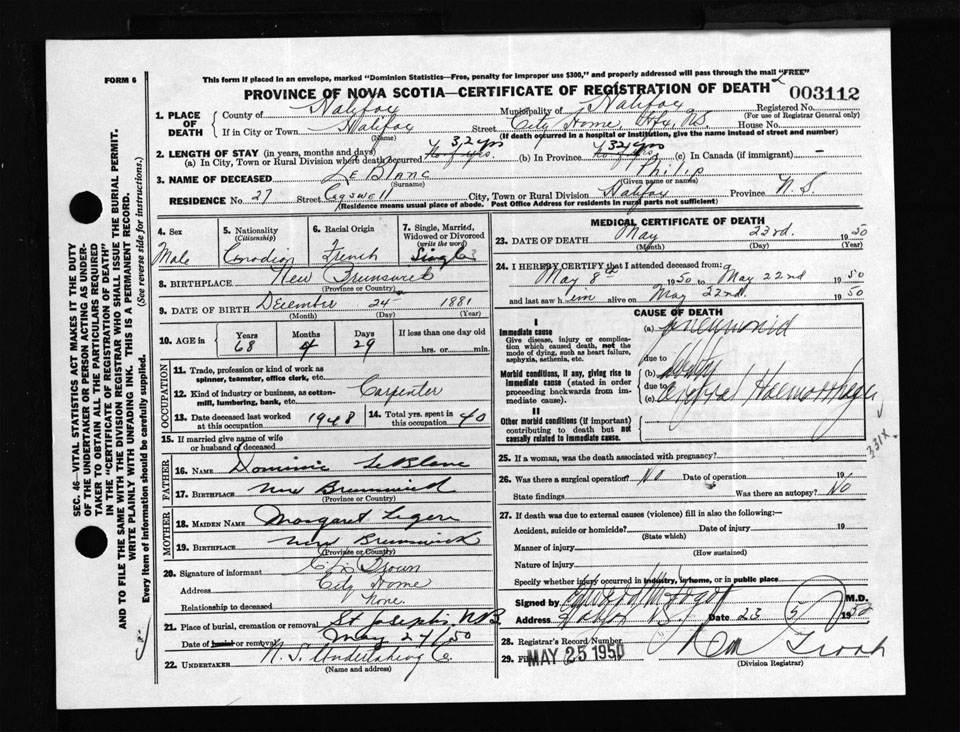 FORM 6
This form if placed in an envelope, marked "Dominion Statistics—Free, penalty for improper use $300," and properly addressed will pass through the mail "FREE"
PROVINCE OF NOVA SCOTIA—CERTIFICATE OF REGISTRATION OF DEATH 003112
1. PLACE OF DEATH
County of Halifax Municipality of Halifax Registered No.
(For use of Registrar General only)
If in City or Town Halifax Street City Home, Hfx, N.S. House No.
(Name) (If death occurred in a hospital or institution, give the name instead of street and number)
2. LENGTH OF STAY (in years, months and days)
(a) In City, Town or Rural Division where death occurred 32 yrs (b) In Province 32 yrs (c) In Canada (if immigrant) —
3. NAME OF DECEASED LeBlanc Philip
(Surname) (Given name or names)
RESIDENCE No. 27 Street Cogswell City, Town or Rural Division Halifax Province N.S.
(Residence means usual place of abode. Post Office Address for residents in rural parts not sufficient)
4. Sex Male
5. Nationality (Citizenship) Canadian
6. Racial Origin French
7. Single, Married, Widowed or Divorced (write the word) Single
8. BIRTHPLACE New Brunswick
(Province or Country)
9. DATE OF BIRTH December 24 1881
(Month) (Day) (Year)
10. AGE in Years 68 Months 4 Days 29 If less than one day old
hrs. or min.
OCCUPATION
11. Trade, profession or kind of work as spinner, teamster, office clerk, etc.
12. Kind of industry or business, as cotton-mill, lumbering, bank, etc. Carpenter
13. Date deceased last worked at this occupation 1948 14. Total yrs. spent in this occupation 40
15. If married give name of wife or husband of deceased
FATHER
16. NAME Dominic LeBlanc
17. BIRTHPLACE New Brunswick
(Province or Country)
MOTHER
18. MAIDEN NAME Margaret Legere
19. BIRTHPLACE New Brunswick
(Province or Country)
20. Signature of informant Brown
Address City Home
Relationship to deceased None
21. Place of burial, cremation or removal St Josephs N.B.
Date of burial or removal May 24/50
22. UNDERTAKER N.S. Undertaking Co.
(Name and address)
MEDICAL CERTIFICATE OF DEATH
23. DATE OF DEATH May 23rd. 1950
(Month) (Day) (Year)
24. I HEREBY CERTIFY that I attended deceased from:
May 8th 1950 to May 22nd 1950
and last saw him alive on May 22nd. 1950
CAUSE OF DEATH
I
Immediate cause
Give disease, injury or complication which caused death, not the mode of dying, such as heart failure, asphyxia, asthenia, etc.
(a) pneumonia
due to
Morbid conditions, if any, giving rise to immediate cause (stated in order proceeding backwards from immediate cause).
(b) debility
due to
(c) Cerebral Haemorrhage
II
Other morbid conditions (if important) contributing to death but not causally related to immediate cause.
331X
25. If a woman, was the death associated with pregnancy?
26. Was there a surgical operation? No Date of operation 19
State findings Was there an autopsy? No
27. If death was due to external causes (violence) fill in also the following:—
Accident, suicide or homicide? Date of injury 19
(State which)
Manner of injury
(How sustained)
Nature of injury
Specify whether injury occurred in industry, in home, or in public place
Signed by M.D.
Address Date 23 5 1950
28. Registrar's Record Number
29. MAY 25 1950
(Division Registrar)
SEC. 46—VITAL STATISTICS ACT MAKES IT THE DUTY
OF THE UNDERTAKER OR PERSON ACTING AS UNDER-
TAKER TO OBTAIN ALL THE PARTICULARS REQUIRED
IN THE "CERTIFICATE OF REGISTRATION OF DEATH"
AND TO FILE THE SAME WITH THE DIVISION REGISTRAR WHO SHALL ISSUE THE BURIAL PERMIT.
WRITE PLAINLY WITH UNFADING INK. THIS IS A PERMANENT RECORD.
Every item of information should be carefully supplied. (See reverse side for instructions.)